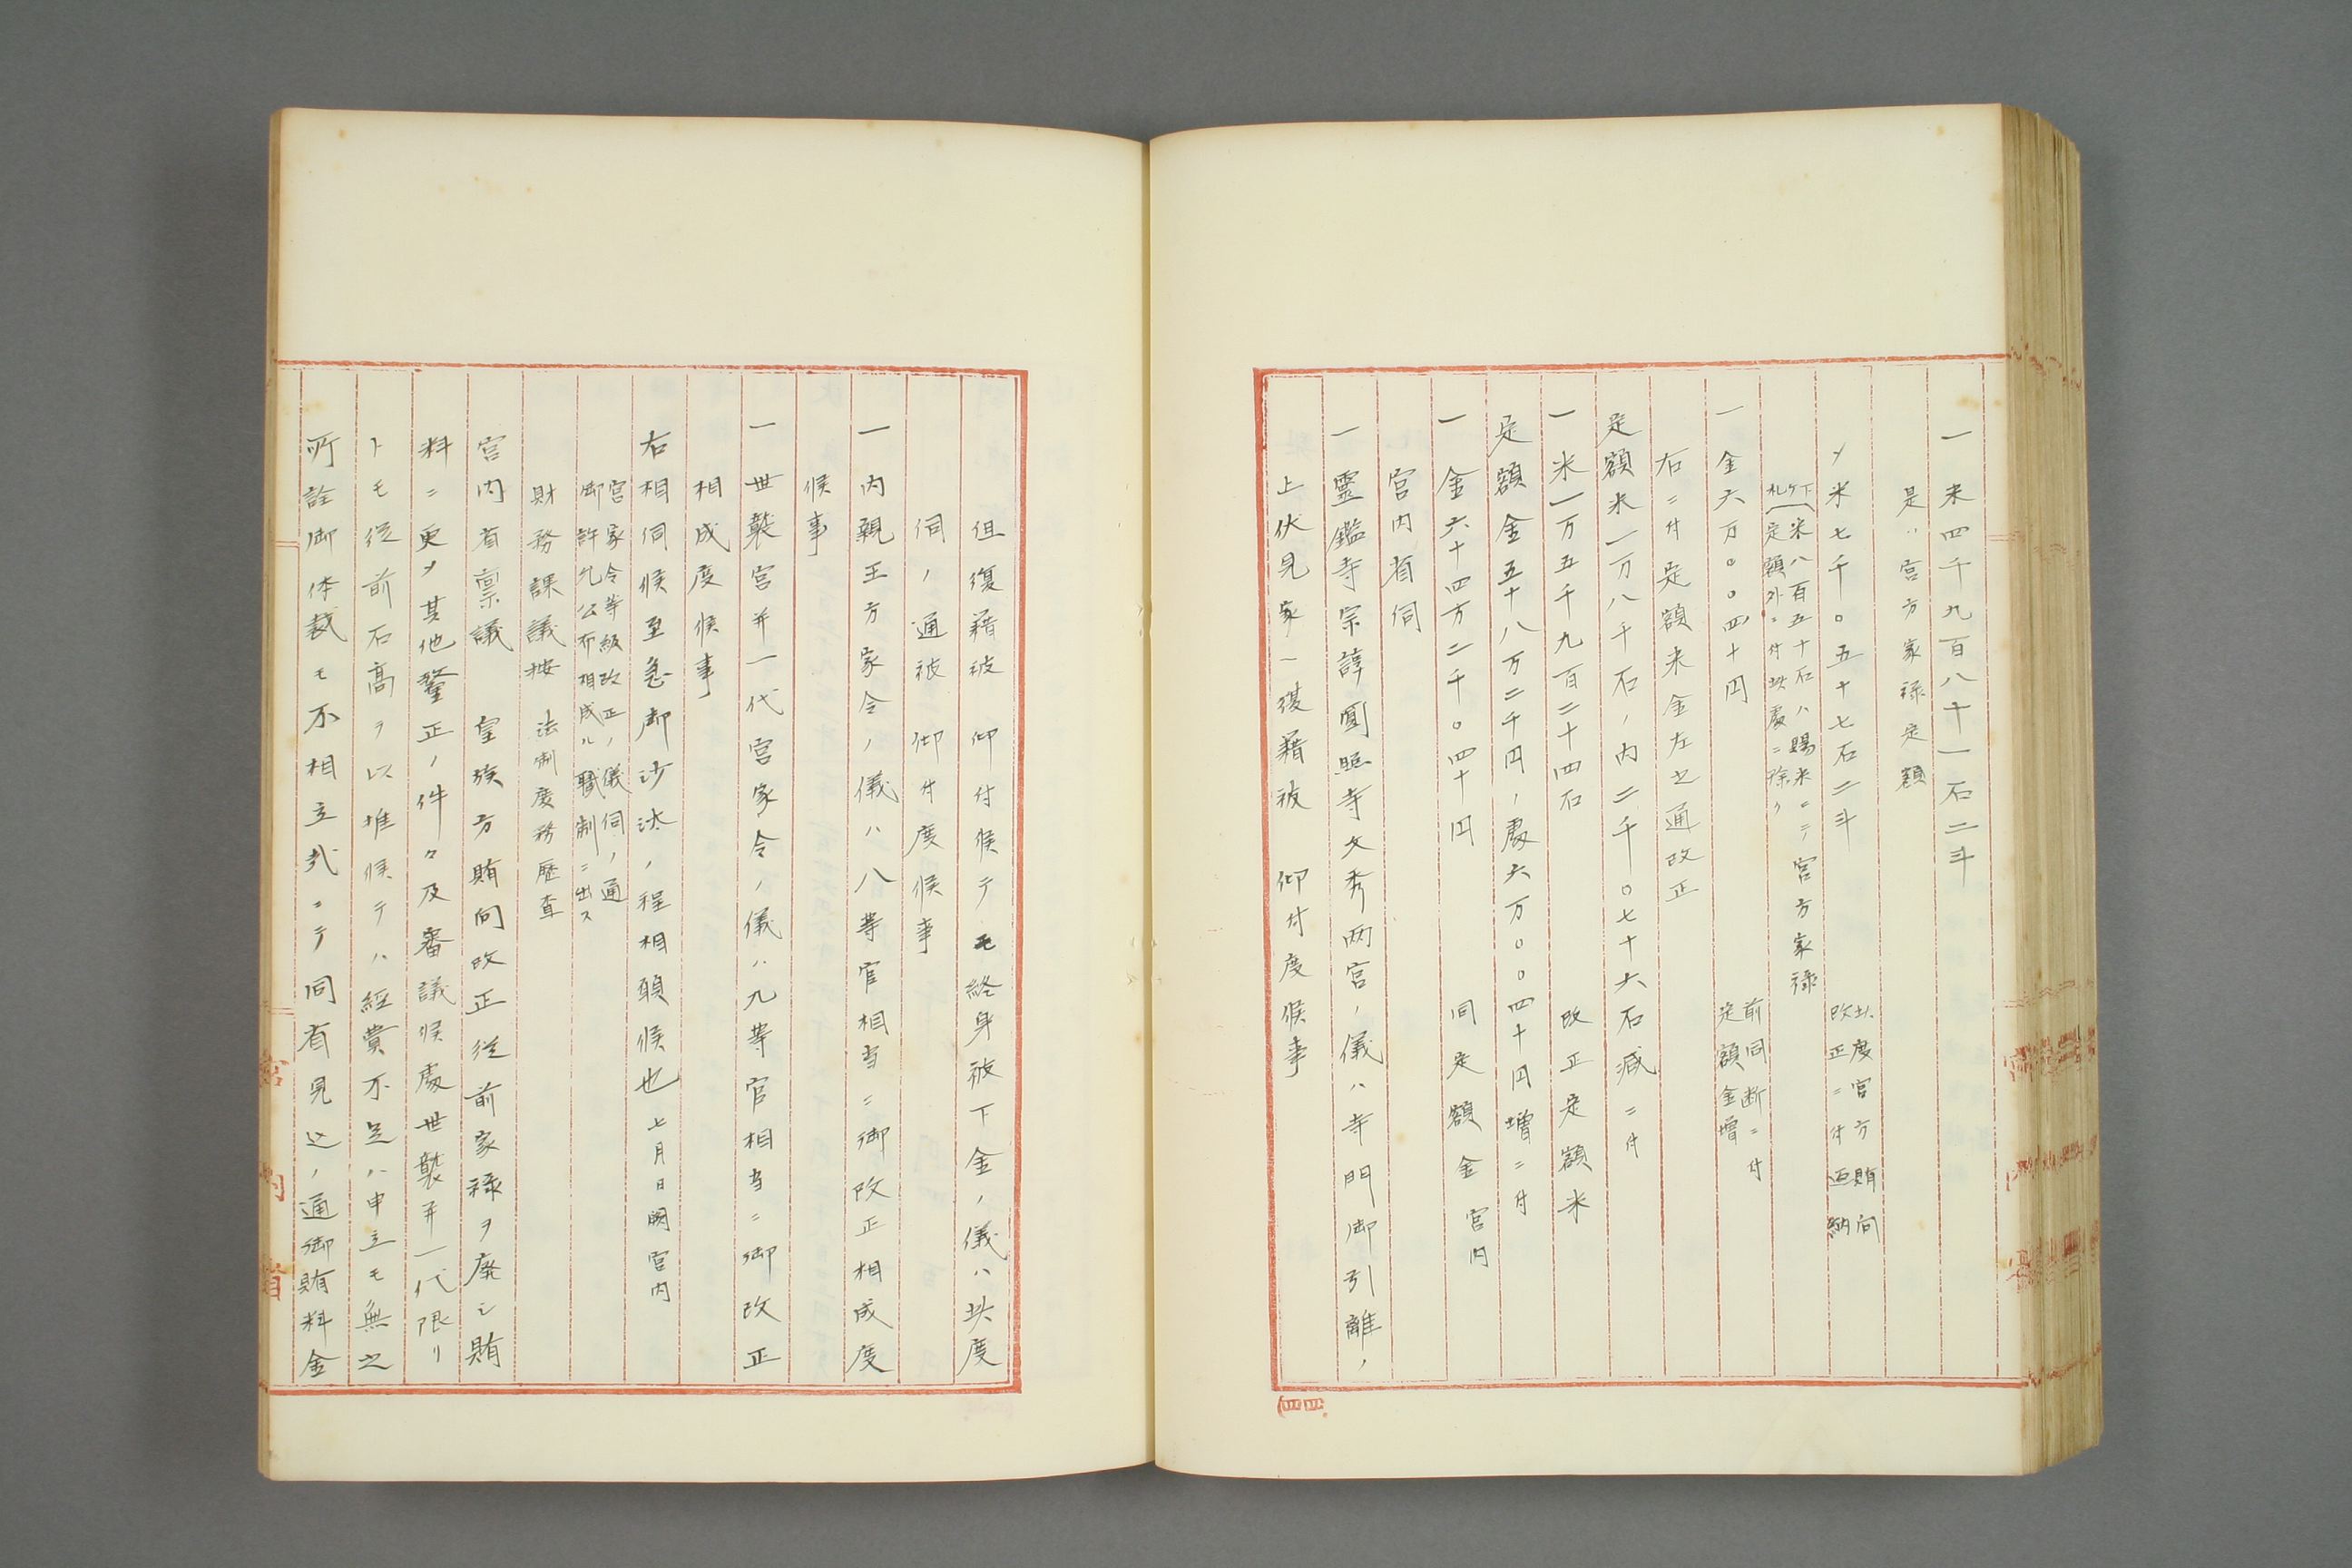 一米四千九百八十一石二斗
是ハ宮方家禄定額
〆米七千〇五十七石二斗
此度宮方賄向
改正ニ付返納
下ケ札
米八百五十石ハ賜米ニテ宮方家禄
定額外ニ付此處ニ除ク
一金六万〇〇四十円
前同断ニ付
定額金増
右ニ付定額米金左之通改正
定額米一万八千石ノ内二千〇七十六石減ニ付
一米一万五千九百二十四石 改正定額米
定額金五十八万二千円ノ處六万〇〇四十円増ニ付
一金六十四万二千〇四十円 同定額金 宮内
宮内省伺
一靈鑑寺宗諄圓照寺文秀両宮ノ儀ハ寺門御引離ノ
上伏見家一復籍被 仰付度候事
但復籍被 仰付候テモ終身被下金ノ儀ハ此度
伺ノ通被 仰付度候事
一内親王方家令ノ儀ハ八等官相当ニ御改正相成度
候事
一世襲宮并一代宮家令ノ儀ハ九等官相当ニ御改正
相成度候事
右相伺候至急御沙汰ノ程相願候也 七月日闕宮内
宮家令等級改正ノ儀伺ノ通
御許允公布相成ル職制ニ出ス
財務課議按 法制度務歴査
宮内省稟議 皇族方賄向改正従前家禄ヲ廃シ賄
料ニ更メ其他釐正ノ件々及審議候處世襲并一代限リ
トモ従前石高ヲ以推候テハ經費不足ハ申立モ無之
所詮御体裁モ不相立式ニテ同省見込ノ通御賄料金
宮内省